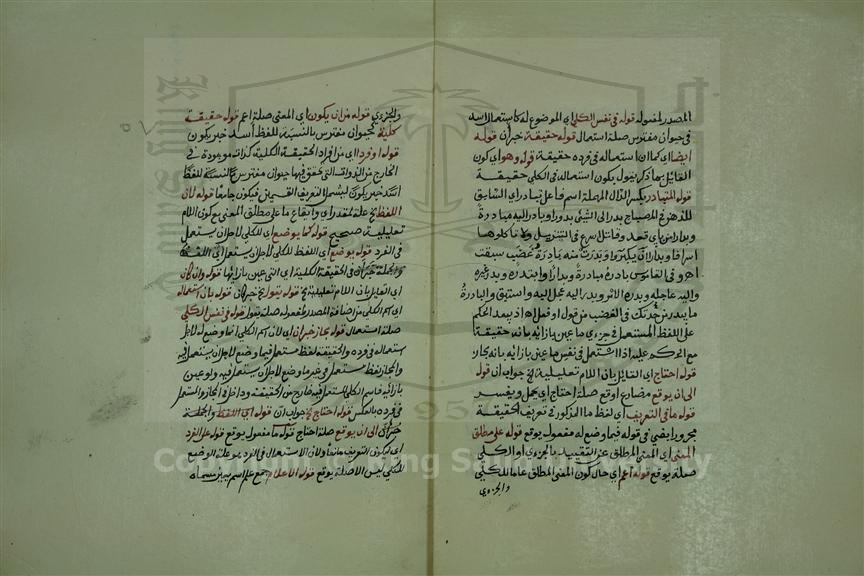 المصدر لمفعوله قوله في نفس الكلي اي الموضوع له كاستعمال اسد
في حيوان مفترس صلة استعمال قوله حقيقة خبر ان قوله
ايضا اي كما ان استعماله في فرده حقيقة قوله وهو اي كون
القائل بما ذكر يقول يكون استعماله في الكلي حقيقة
قوله المتبادر بكسر الدال المهملة اسم فاعل تبادر اي السابق
للذهن في المصباح بدر الى الشيئ بدورا وبادر اليه مبادرة
وبدارا من باب قعد وقاتل اسرع وفي التنزيل ولا تأكلوها
اسرافا وبدارا ان يكبروا وبدرت منه بادرة غضب سبقت
اهـ وفي القاموس بادره مبادرة وبدارا وابتدره وبدر غيره
واليه عاجله وبدره الامر وبدر اليه عجل اليه واستبق والبادرة
ما يبدر من حدتك في الغضب من قول او فعل اهـ
على اللفظ المستعمل في جزوي ما عين بازائه بانه حقيقة
مع الحكم عليه اذا استعمل في نفس ما عين بازائه بانه مجاز
قوله احتاج اي القائل بان اللام تعليلية جواب ان قوله
الى ان يوقع مضارع اوقع صلة احتاج اي يحمل ويفسر
قوله ما في التعريف اي لفظ ما المذكور في تعريف الحقيقة
في قوله فيما وضع له مفعول يوقع قوله على مطلق
المعنى اي المعنى المطلق عن التقييد بالجزوي او الكلي
صلة يوقع قوله اعم اي حال كون المعنى المطلق عاما للكلي
والجزوي
والجزوي قوله من ان يكون اي المعنى صلة اعم قوله حقيقة
كلية كحيوان مفترس بالنسبة للفظ اسد خبر يكون
قوله او فردا اي من افراد الحقيقة الكلية كذات موجودة في
الخارج من الذوات التي تحقق فيها حيوان مفترس بالنسبة للفظ
اسد خبر يكون ليشمل التعريف القسمين فيكون جامعا قوله لان
اللفظ علة لمقدر اي وايقاع ما على مطلق المعنى مع كون اللام
تعليلية صحيح قوله كما يوضع اي للكلي لاجل ان يستعمل
في الفرد قوله يوضع اي اللفظ للكلي لاجل ان يستعمل اي اللفظ
والجملة خبر ان في الحقيقة الكلية اي التي عين بازائها قوله وان كان
اي القائل بان اللام تعليلية قوله يقول خبر كان قوله بان استعماله
اي اسم الكلي من اضافة المصدر لمفعوله صلة يقول قوله في نفس الكلي
صلة استعمال قوله مجاز خبر ان اي لان اسم الكلي انما وضع له لاجل
استعماله في فرده والحقيقة لفظ مستعمل فيما وضع لاجل ان يستعمل فيه
والمجاز لفظ مستعمل في غير ما وضع لاجل ان يستعمل فيه ولو عين
بازائه فاسم الكلي المستعمل فيه خارج من الحقيقة وداخل في المجاز والمستعمل
في فرده بالعكس قوله احتاج جواب ان قوله اي اللفظ والجملة
خبر ان الى ان يوقع صلة احتاج قوله ما مفعول يوقع قوله على الفرد
اي ليكون التعريف مانعا ولان الاستعمال في الفرد هو علة الوضع
للكلي صلة يوقع قوله الاعلام جمع علم اسم يميز مسماه